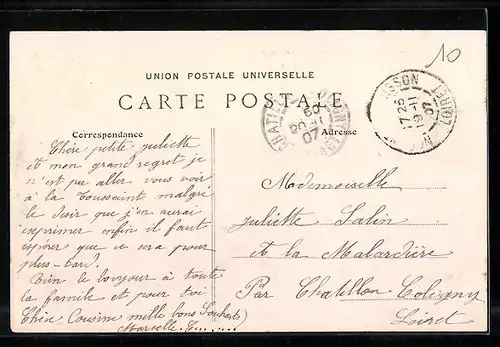 10
UNION POSTALE UNIVERSELLE
CARTE POSTALE
Correspondance
Adresse
Chère petite juliette
et mon grand regret je
n'est pu aller vous voir
à la Toussaint malgré
le desir que j'en aurai
exprimer enfin il faut
espérer que ce sera pour
plus-tard
Bien le bonjour à toute
la famille et pour toi
Chère Cousine mille bons Souhaits
Marcelle
Mademoiselle
juliette Salin
et la Malardière
Par Chatillon Coligny
Loiret
20-11
07
17 25
19-11
07
LOIRET